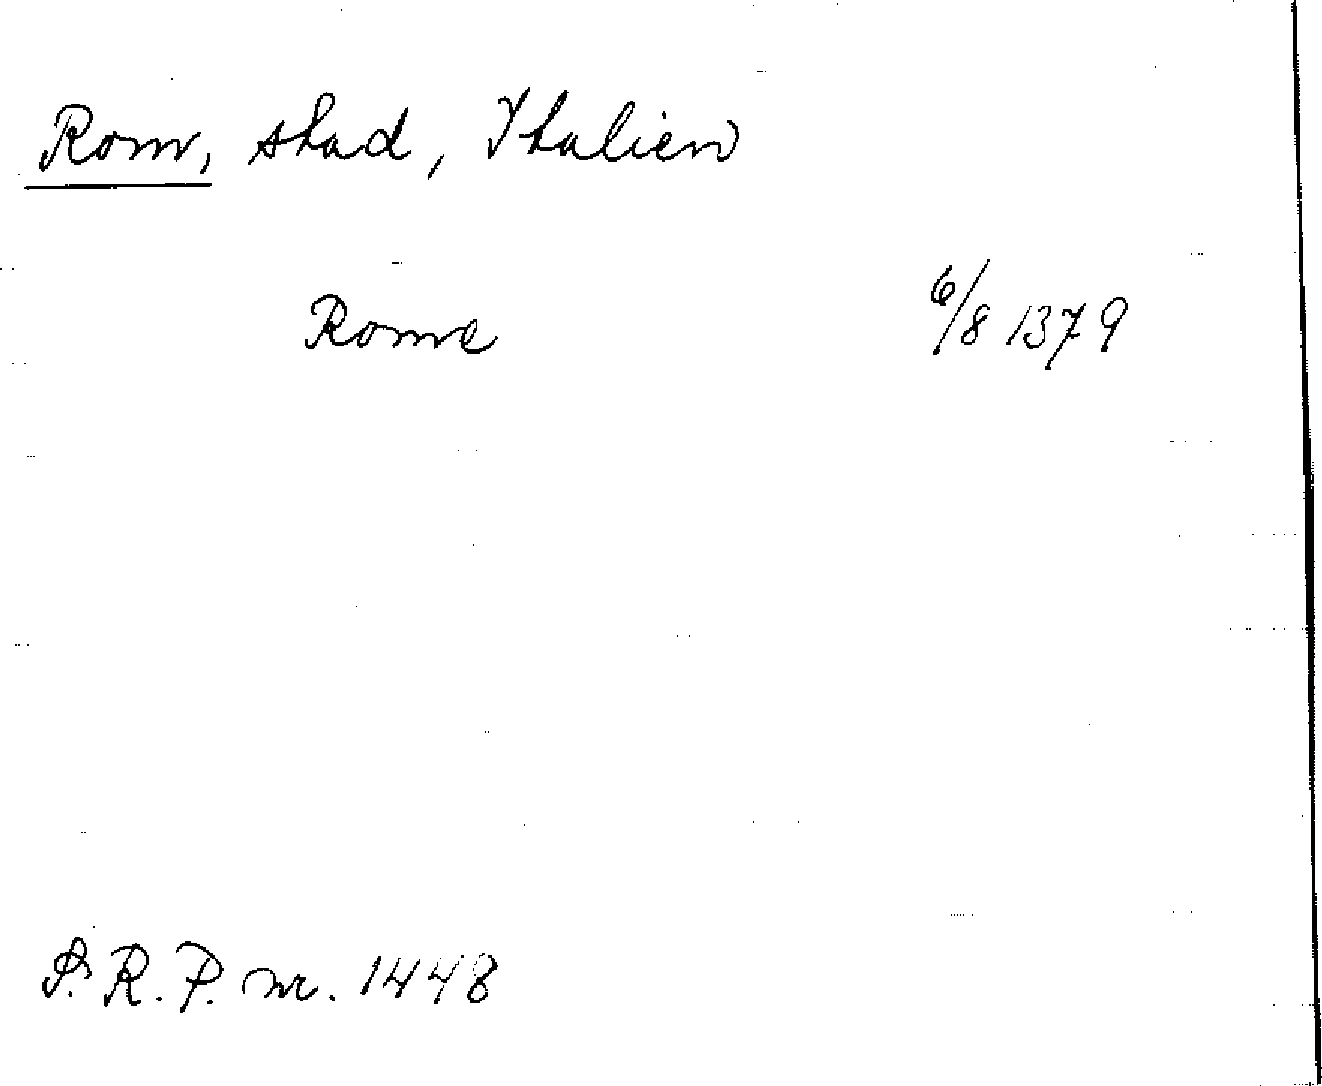 Rom, stad, Italien
Rome 6/8 1379
S.R.P. nr. 1448